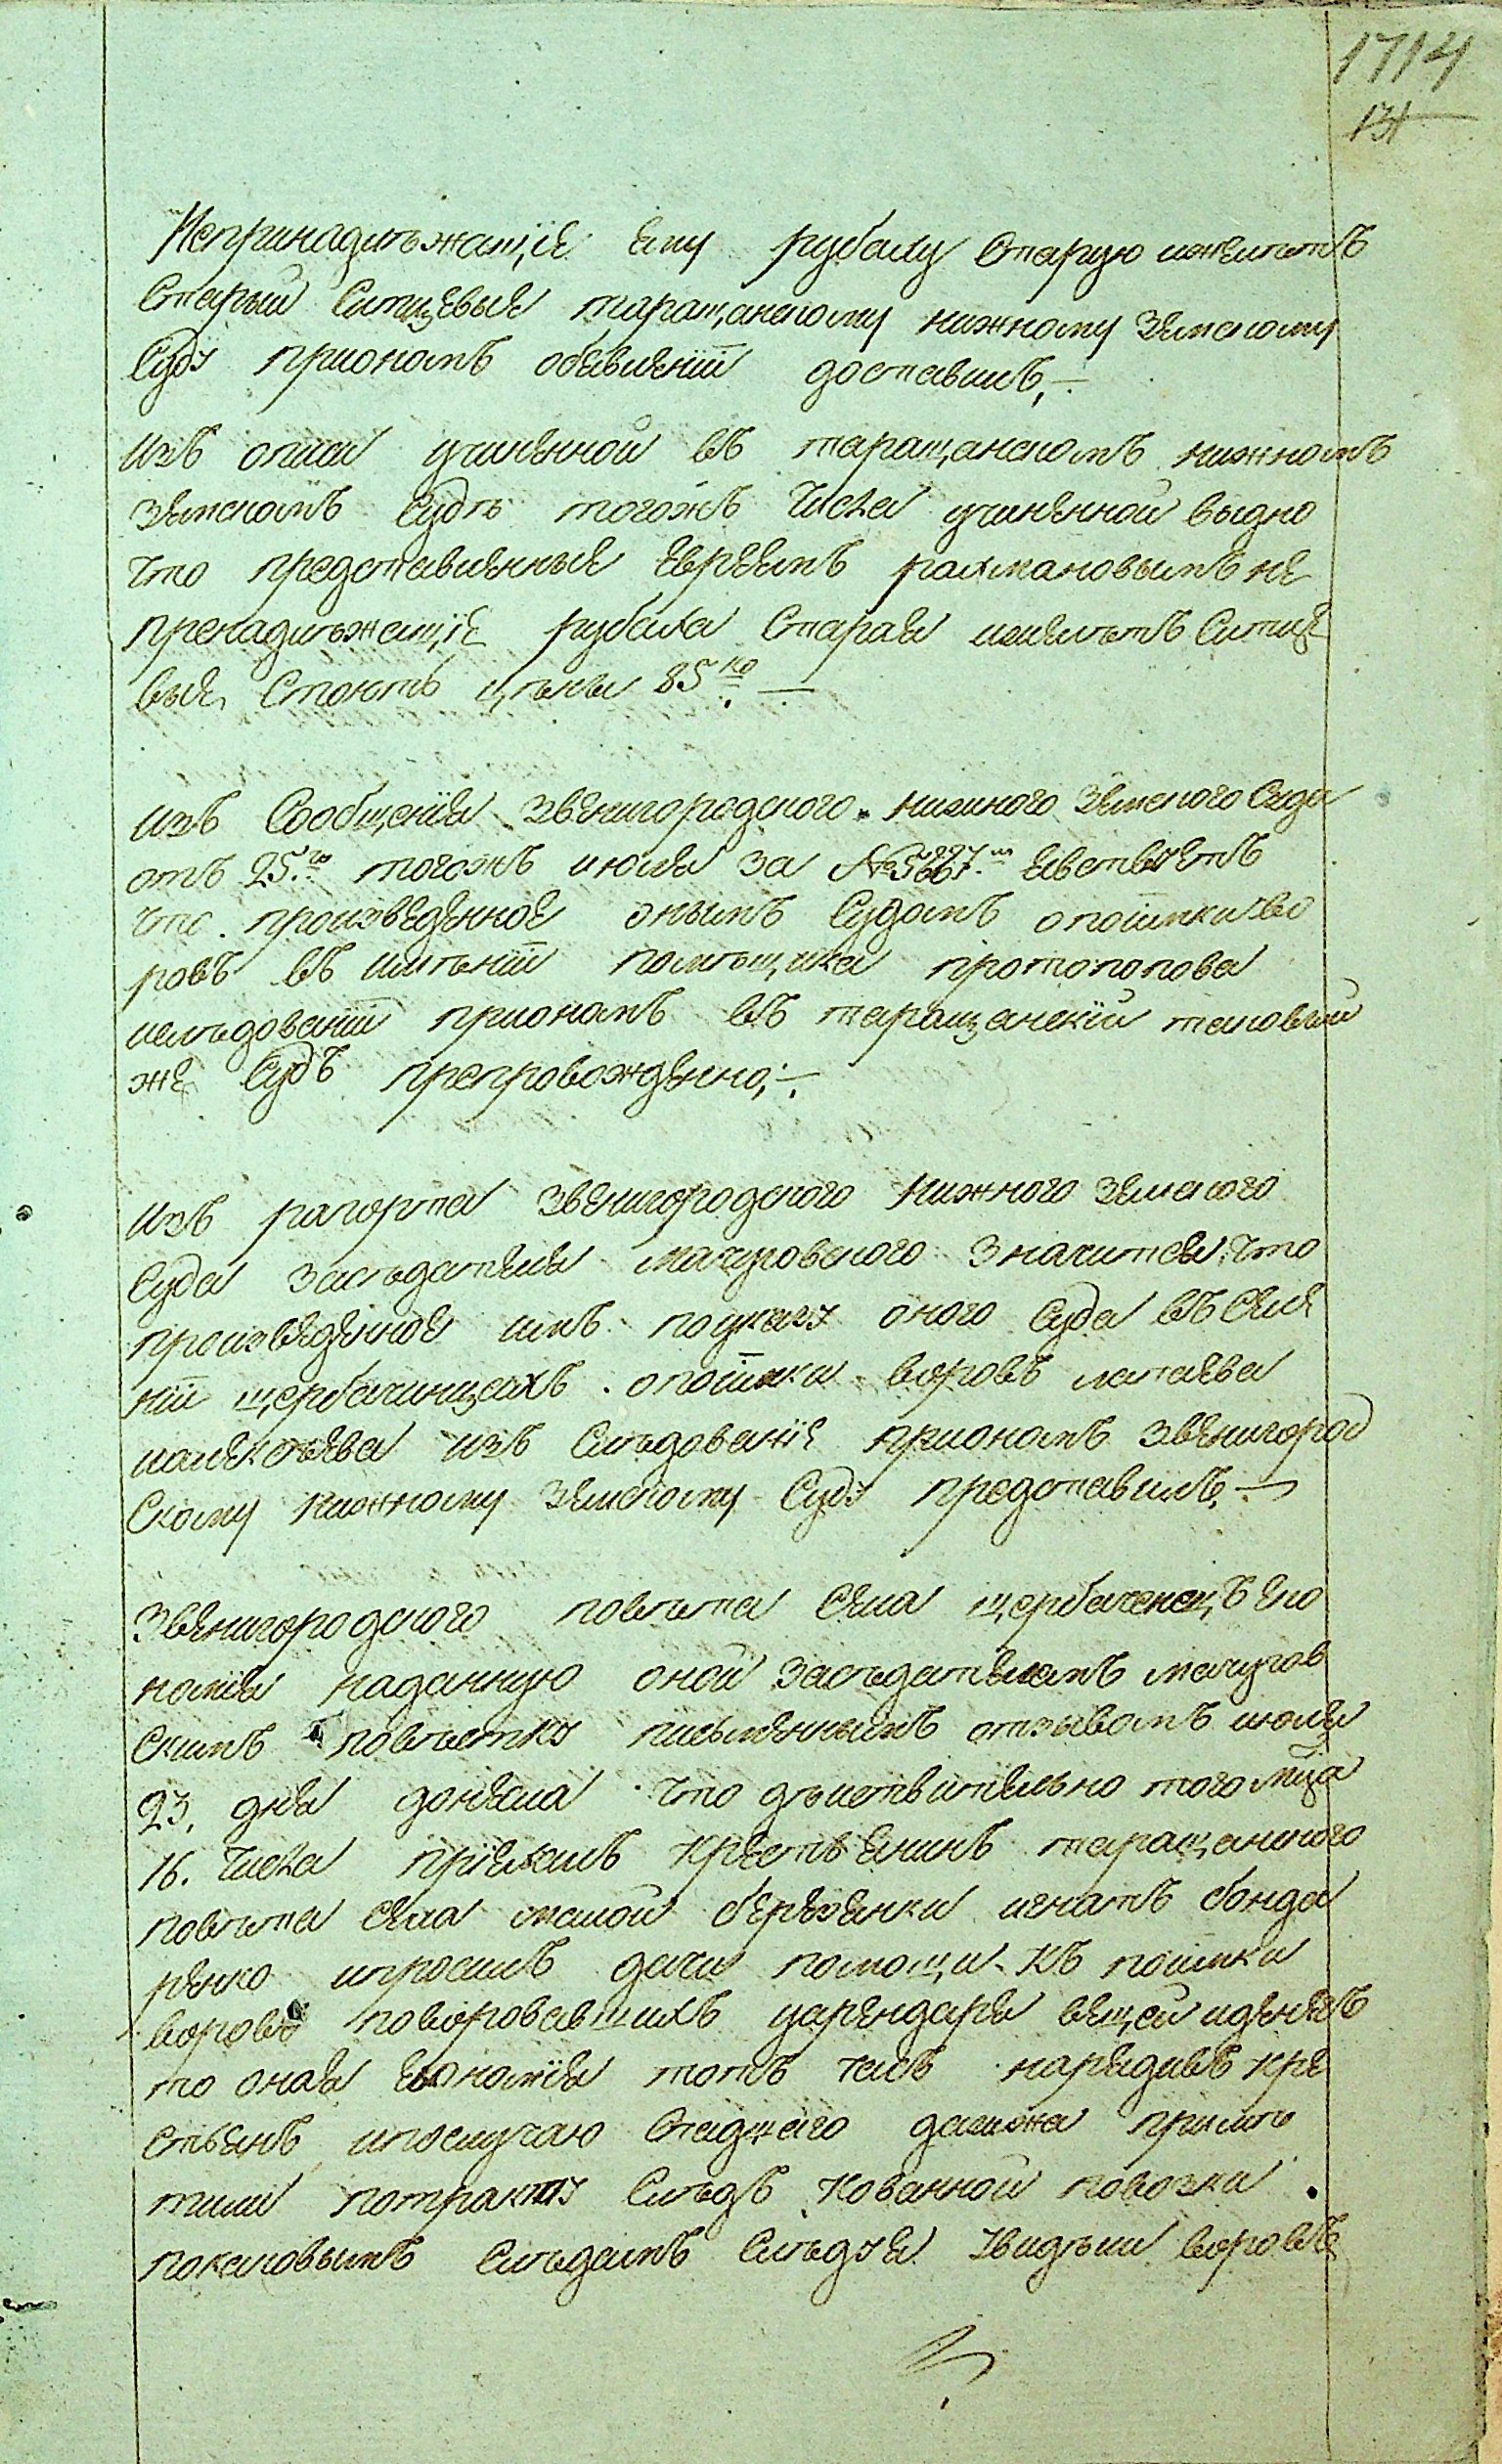 1714
131
Непринадлѣжащіе ему рубаху Старую ижелѣтъ
Старый Ситцевые таращанскому нижному Земскому
Суду прионамъ обявленіи доставилъ,
Изъ описи учиненной въ таращанскомъ нижномъ
земскомъ Судѣ тогожъ Числа учиненной выдно
что представленные Евреемъ рахмановымъ не
пренадлѣжащіе рубаха Старая ижилѣтъ Ситце
выя, Стоютъ цѣны 85 ко
изъ Сообщенія Звенигородского нижного Земского Суда
отъ 25.го тогожъ июля за № явствуетъ
что произведенное онымъ Судомъ опоимки во
ровъ въ имѣніи помѣщика протопопова
изслѣдованіи прионамъ въ таращанскій таковый
же Судъ препровожденно;
Изъ рапорта Звенигородского Нижного Земского
Суда Засѣдателя мачуговского Значится, что
произведенное имъ поуказу оного Суда въ Селе
ніи щербачинцахъ опоимки воровъ матвѣева
иалексѣева изъ Слѣдованіе прионамъ Звенигород
Скому Нижному Земскому Суду представилъ,
Звенигородского повѣта Села щербаченецъ Еко
номія наданную оной Засѣдателемъ мачугов
Скимъ повѣстку письменнымъ отзывомъ июля
23. дня донесла что дѣиствительно того мца
16. Числа пріехалъ Крестьянинъ таращанского
повѣта Села малой березянки игнатъ бонда
ренко ипросилъ дачи помощи къ поимки
воровъ поворовавшихъ уарендаря вещей иденегъ
то оная Економія тотъ часъ нарядивъ кре
стьянъ ипослучаю Спадшаго дамжа примѣ
тили потракту Слѣдъ Кованной повозки
покаковымъ Слѣдамъ Слѣдуя Увидѣли воровъ